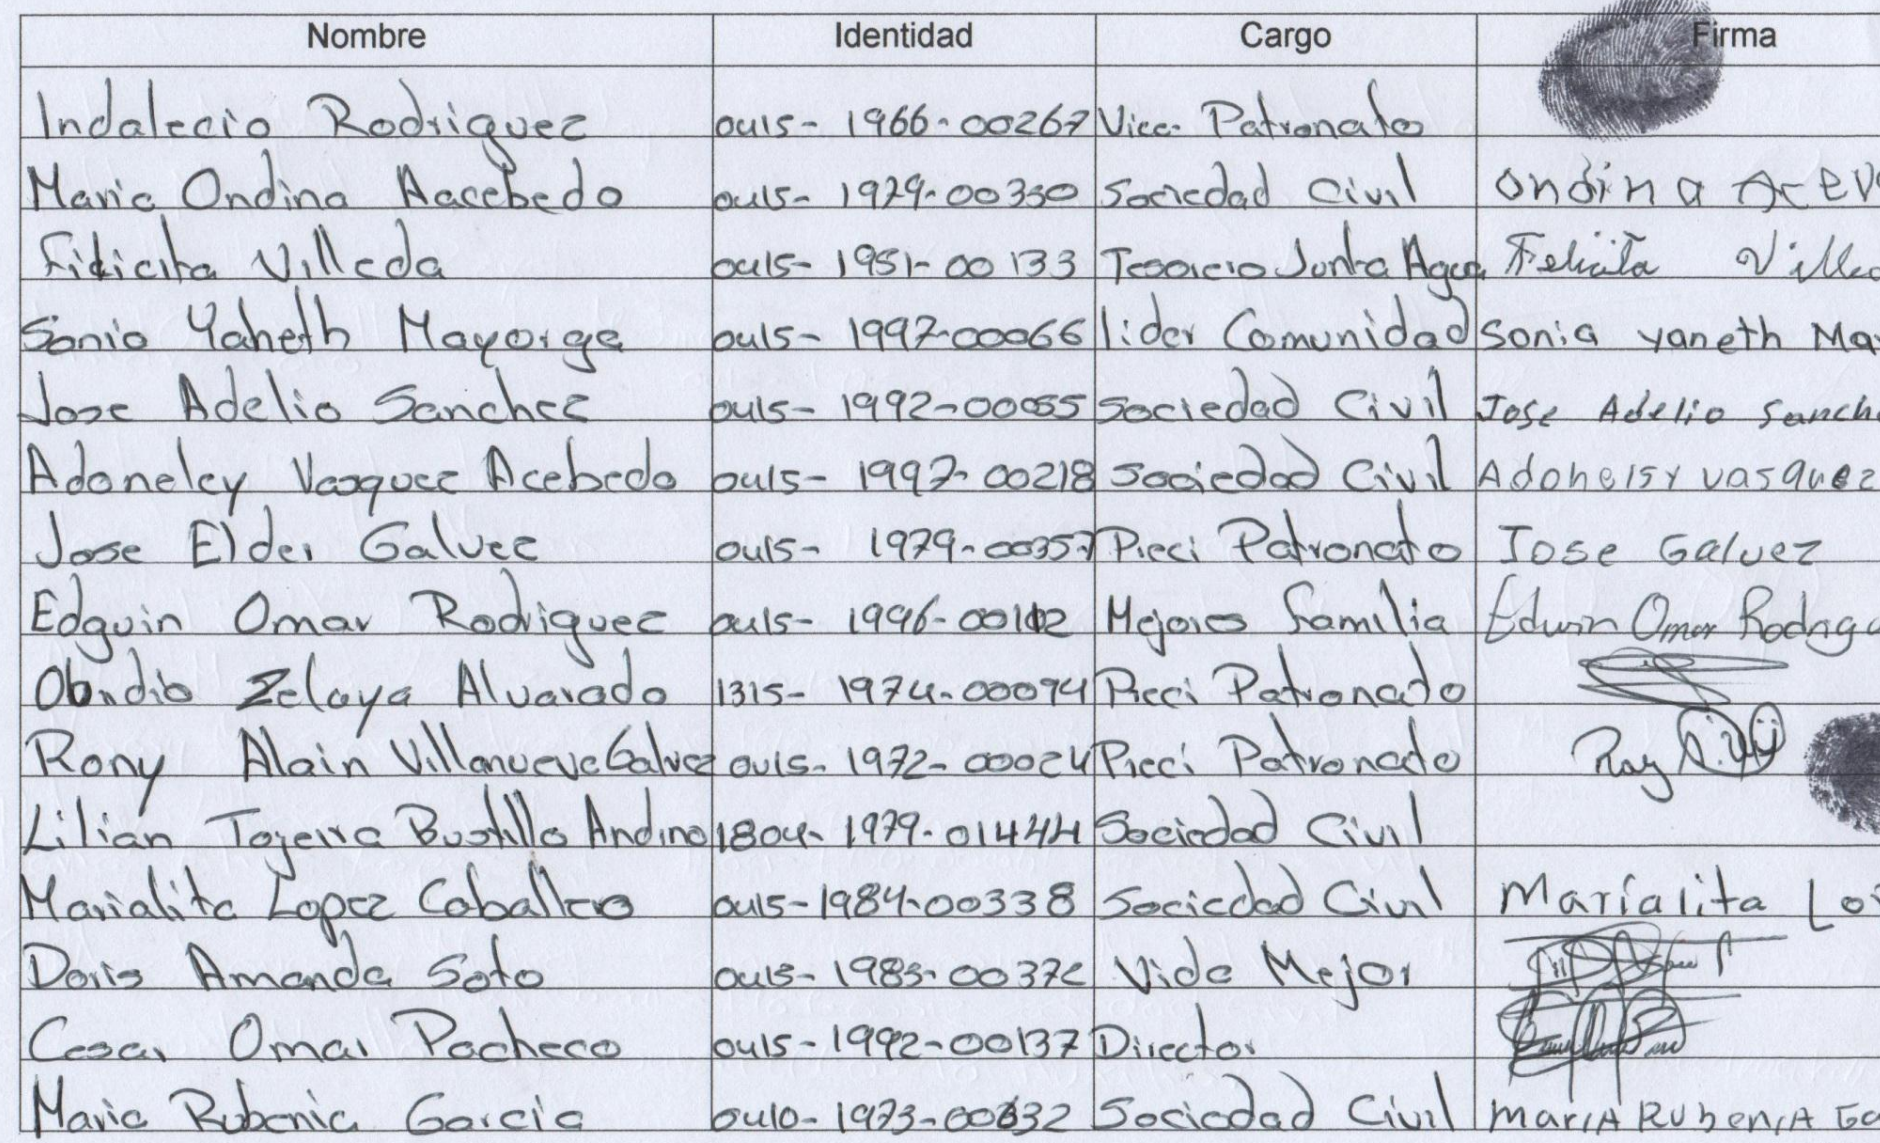 Nombre Identidad Cargo Firma
Indalecio Rodriguez 0415- 1966-00267 Vice- Patronato
Maria Ondina Aacebedo 0415- 1979-00350 Sociedad Civil Ondina Acev
Villeda 0415- 1951-00133 Tesorero Junta Agua Felicita Ville
Sonia Yaneth Mayorga 0415- 1997-00066 lider Comunidad Sonia yaneth Ma
Jose Adelio Sanchez 0415- 1992-00055 Sociedad Civil Jose Adelio Sanch
Adoneley Vasquez Acebedo 0415- 1997-00218 Sociedad Civil Adonelsy vasquez
Jose Elder Galvez 0415- 1979-00357 Preci Patronato Jose Galvez
Edguin Omar Rodriguez 0415- 1996-00102 Mejores familia Edwin Omar Rodrigu
Zelaya Alvarado 1315- 1974-00094 Preci Patronato
Rony Alain Villanueva Galvez 0415- 1972-00024 Preci Patronato
Lilian Bustillo Andino 1804- 1979-01444 Sociedad Civil
Marialita Lopez Caballero 0415-1984-00338 Sociedad Civil Maríalita Lo
Doris Amanda Soto 0415-1983-00372 Vida Mejor
Cesar Omar Pacheco 0415-1992-00137 Director
Maria Rubenia Garcia 0410-1973-00632 Sociedad Civil MarIA RUbenIA Ga